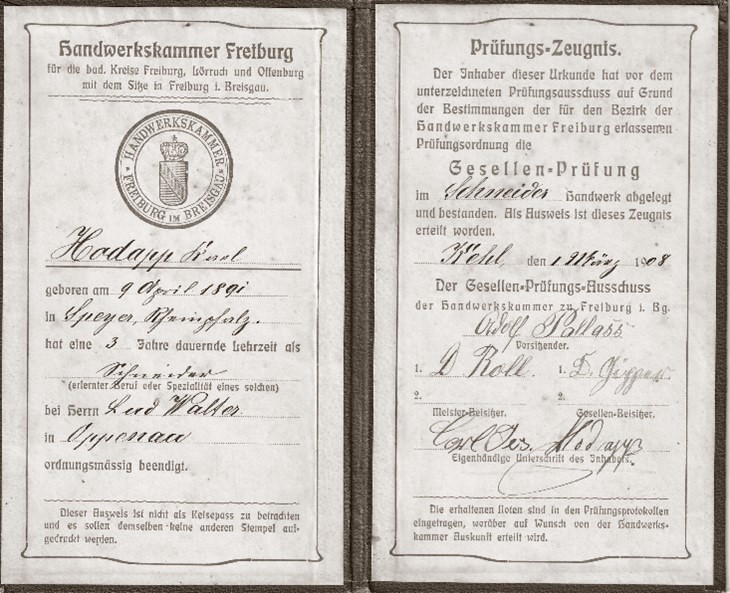 Handwerkskammer Freiburg
für die bad. Kreise Freiburg, Lörrach und Offenburg
mit dem Sitze in Freiburg i. Breisgau.
HANDWERKSKAMMER
FREIBURG IM BREISGAU
Hodapp Karl
geboren am 9 April 1891
in Speyer, Rheinpfalz.
hat eine 3 Jahre dauernde Lehrzeit als
Schneider
(erlernter Beruf oder Spezialität eines solchen)
bei Herrn Lud Walter
in Oppenau
ordnungsmässig beendigt.
Dieser Ausweis ist nicht als Reisepass zu betrachten
und es sollen demselben keine anderen Stempel auf-
gedruckt werden.
Prüfungs-Zeugnis.
Der Inhaber dieser Urkunde hat vor dem
unterzeichneten Prüfungsausschuss auf Grund
der Bestimmungen der für den Bezirk der
Handwerkskammer Freiburg erlassenen
Prüfungsordnung die
Gesellen-Prüfung
im Schneider Handwerk abgelegt
und bestanden. Als Ausweis ist dieses Zeugnis
erteilt worden.
Kehl, den März 1908
Der Gesellen-Prüfungs-Ausschuss
der Handwerkskammer zu Freiburg i. Bg.
Adolf Pallass
Vorsitzender.
1. D Roll. 1.
2. 2.
Meister-Beisitzer. Gesellen-Beisitzer.
Carl Jos. Hodapp
Eigenhändige Unterschrift des Inhabers.
Die erhaltenen Noten sind in den Prüfungsprotokollen
eingetragen, worüber auf Wunsch von der Handwerks-
kammer Auskunft erteilt wird.